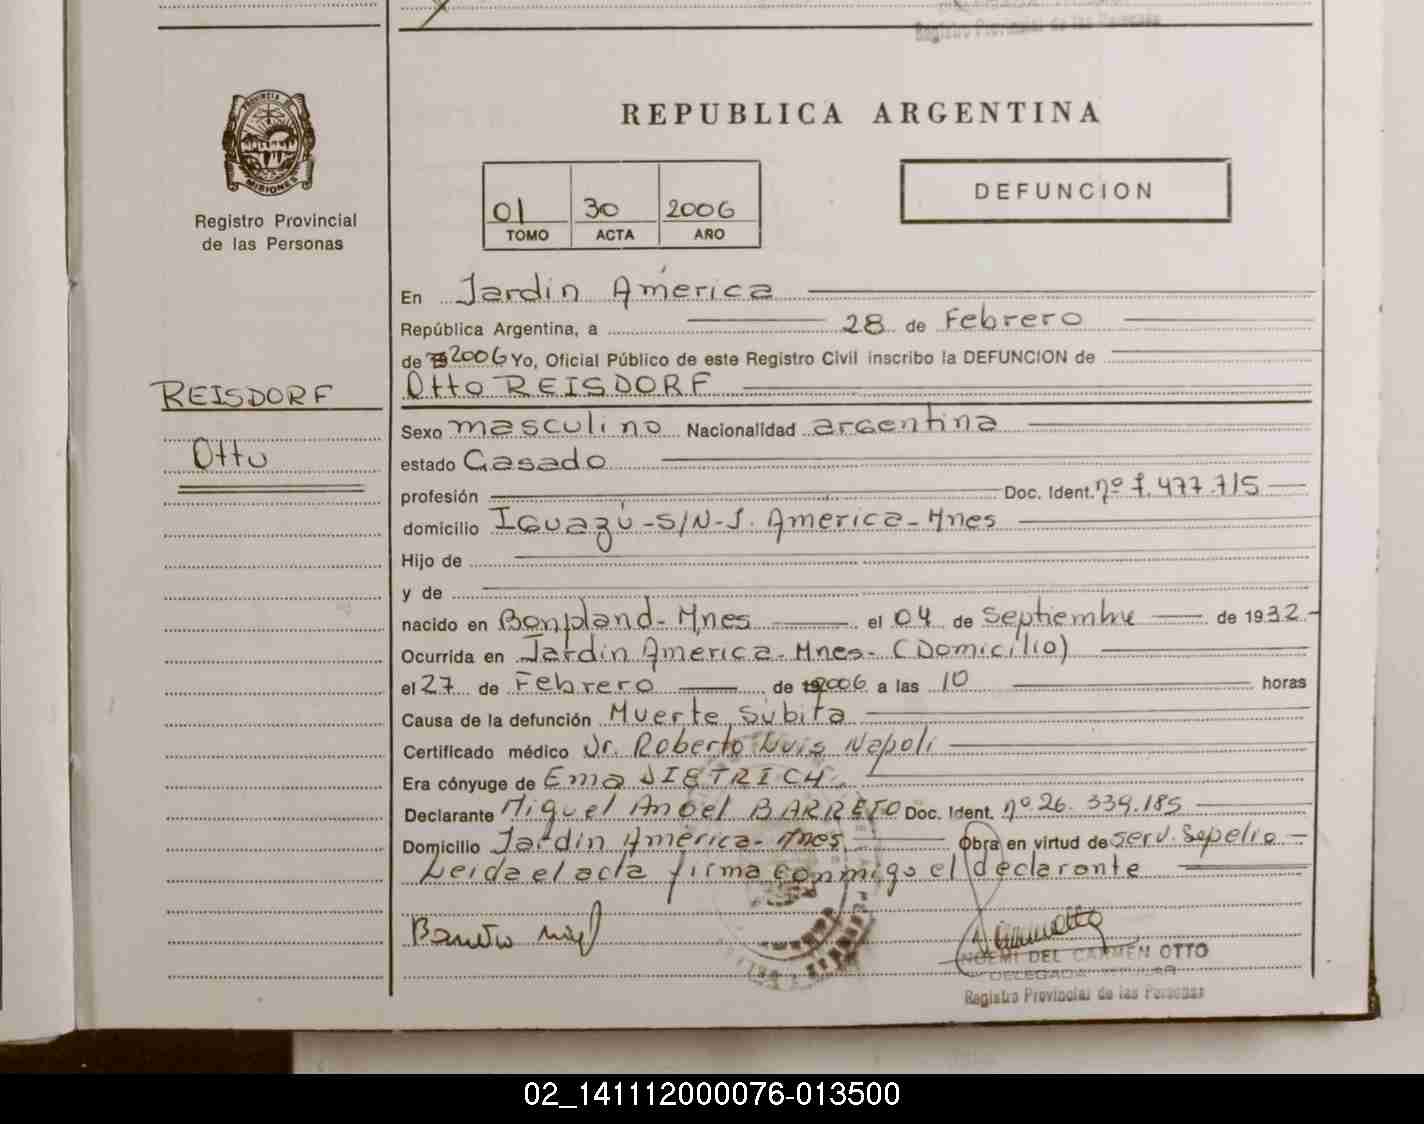 Registro Provincial de las Personas
PROVINCIA DE
MISIONES
Registro Provincial
de las Personas
REPUBLICA ARGENTINA
01 30 2006
TOMO ACTA AÑO
DEFUNCION
En Jardin América
República Argentina, a 28 de Febrero
de 2006 Yo, Oficial Público de este Registro Civil inscribo la DEFUNCION de
REISDORF
Otto REISDORF
Sexo masculino Nacionalidad argentina
Otto
estado Casado
profesión Doc. Ident. nº 7.477.715
domicilio Iguazú-S/N-J. America-Mnes
Hijo de
y de
nacido en Bonpland-Mnes el 04 de Septiembre de 1932-
Ocurrida en Jardin America-Mnes-(Domicilio)
el 27 de Febrero de 2006 a las 10 horas
Causa de la defunción Muerte Súbita
Certificado médico Dr. Roberto Luis Napoli
Era cónyuge de Ema DIETRICH
Declarante Miguel Angel BARRETO Doc. Ident. nº 26.339.185
Domicilio Jardin América-Mnes Obra en virtud de serv. Sepelio
Leida el acta firma conmigo el declarante
Barreto
NOEMI DEL CARMEN OTTO
DELEGADA TITULAR
Registro Provincial de las Personas
02_141112000076-013500